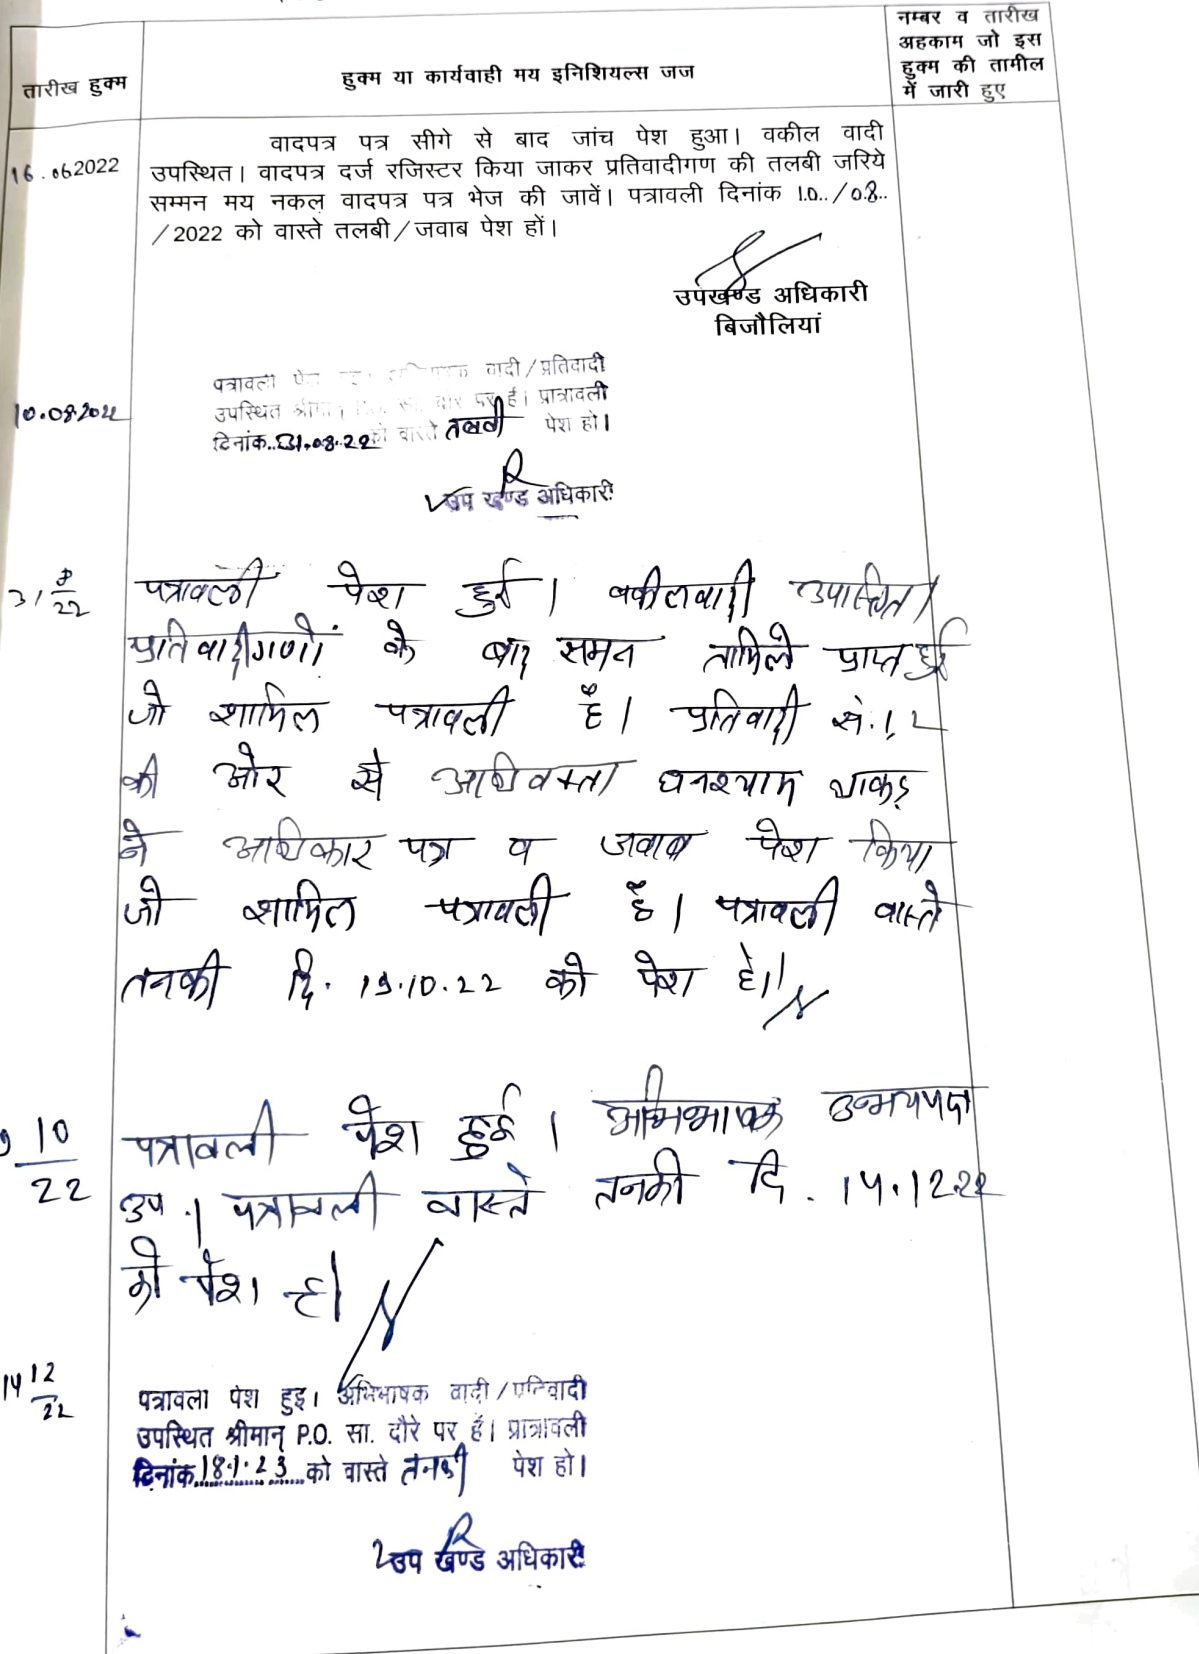 नम्बर व तारीख
अहकाम जो इस
हुक्म की तामील
में जारी हुए
तारीख हुक्म
हुक्म या कार्यवाही मय इनिशियल्स जज
वादपत्र पत्र सीगे से बाद जांच पेश हुआ। वकील वादी
16.062022 उपस्थित। वादपत्र दर्ज रजिस्टर किया जाकर प्रतिवादीगण की तलबी जरिये
सम्मन मय नकल वादपत्र पत्र भेज की जावें। पत्रावली दिनांक 10../08..
/2022 को वास्ते तलबी/जवाब पेश हों।
उपखण्ड अधिकारी
बिजौलियां
पत्रावली वादी/प्रतिवादी
10.08.2022 उपस्थित श्रीमान् सा. दौरे पर हैं। प्रात्रावली
दिनांक..31.08.22 को वास्ते तलबी पेश हो।
उप खण्ड अधिकारी
31 8/22 पत्रावली पेश हुई। वकीलवादी उपास्थित।
प्रतिवादीगणों के बाद समन तामिले प्राप्त हुई
जो शामिल पत्रावली है। प्रतिवादी सं. 1, 2
की ओर से अधिवक्ता घनश्याम धाकड़
ने अधिकार पत्र व जवाब पेश किया
जो शामिल पत्रावली है। पत्रावली वास्ते
तनकी दि. 19.10.22 को पेश हो।
10/22 पत्रावली पेश हुई। अभिभाषक उभयपक्ष
उप.। पत्रावली वास्ते तनकी दि. 14.12.22
को पेश हो।
14 12/22 पत्रावला पेश हुइ। अभिभाषक वादी/प्रतिवादी
उपस्थित श्रीमान् P.O. सा. दौरे पर हैं। प्रात्रावली
दिनांक 18.1.23 को वास्ते तनकी पेश हो।
उप खण्ड अधिकारी